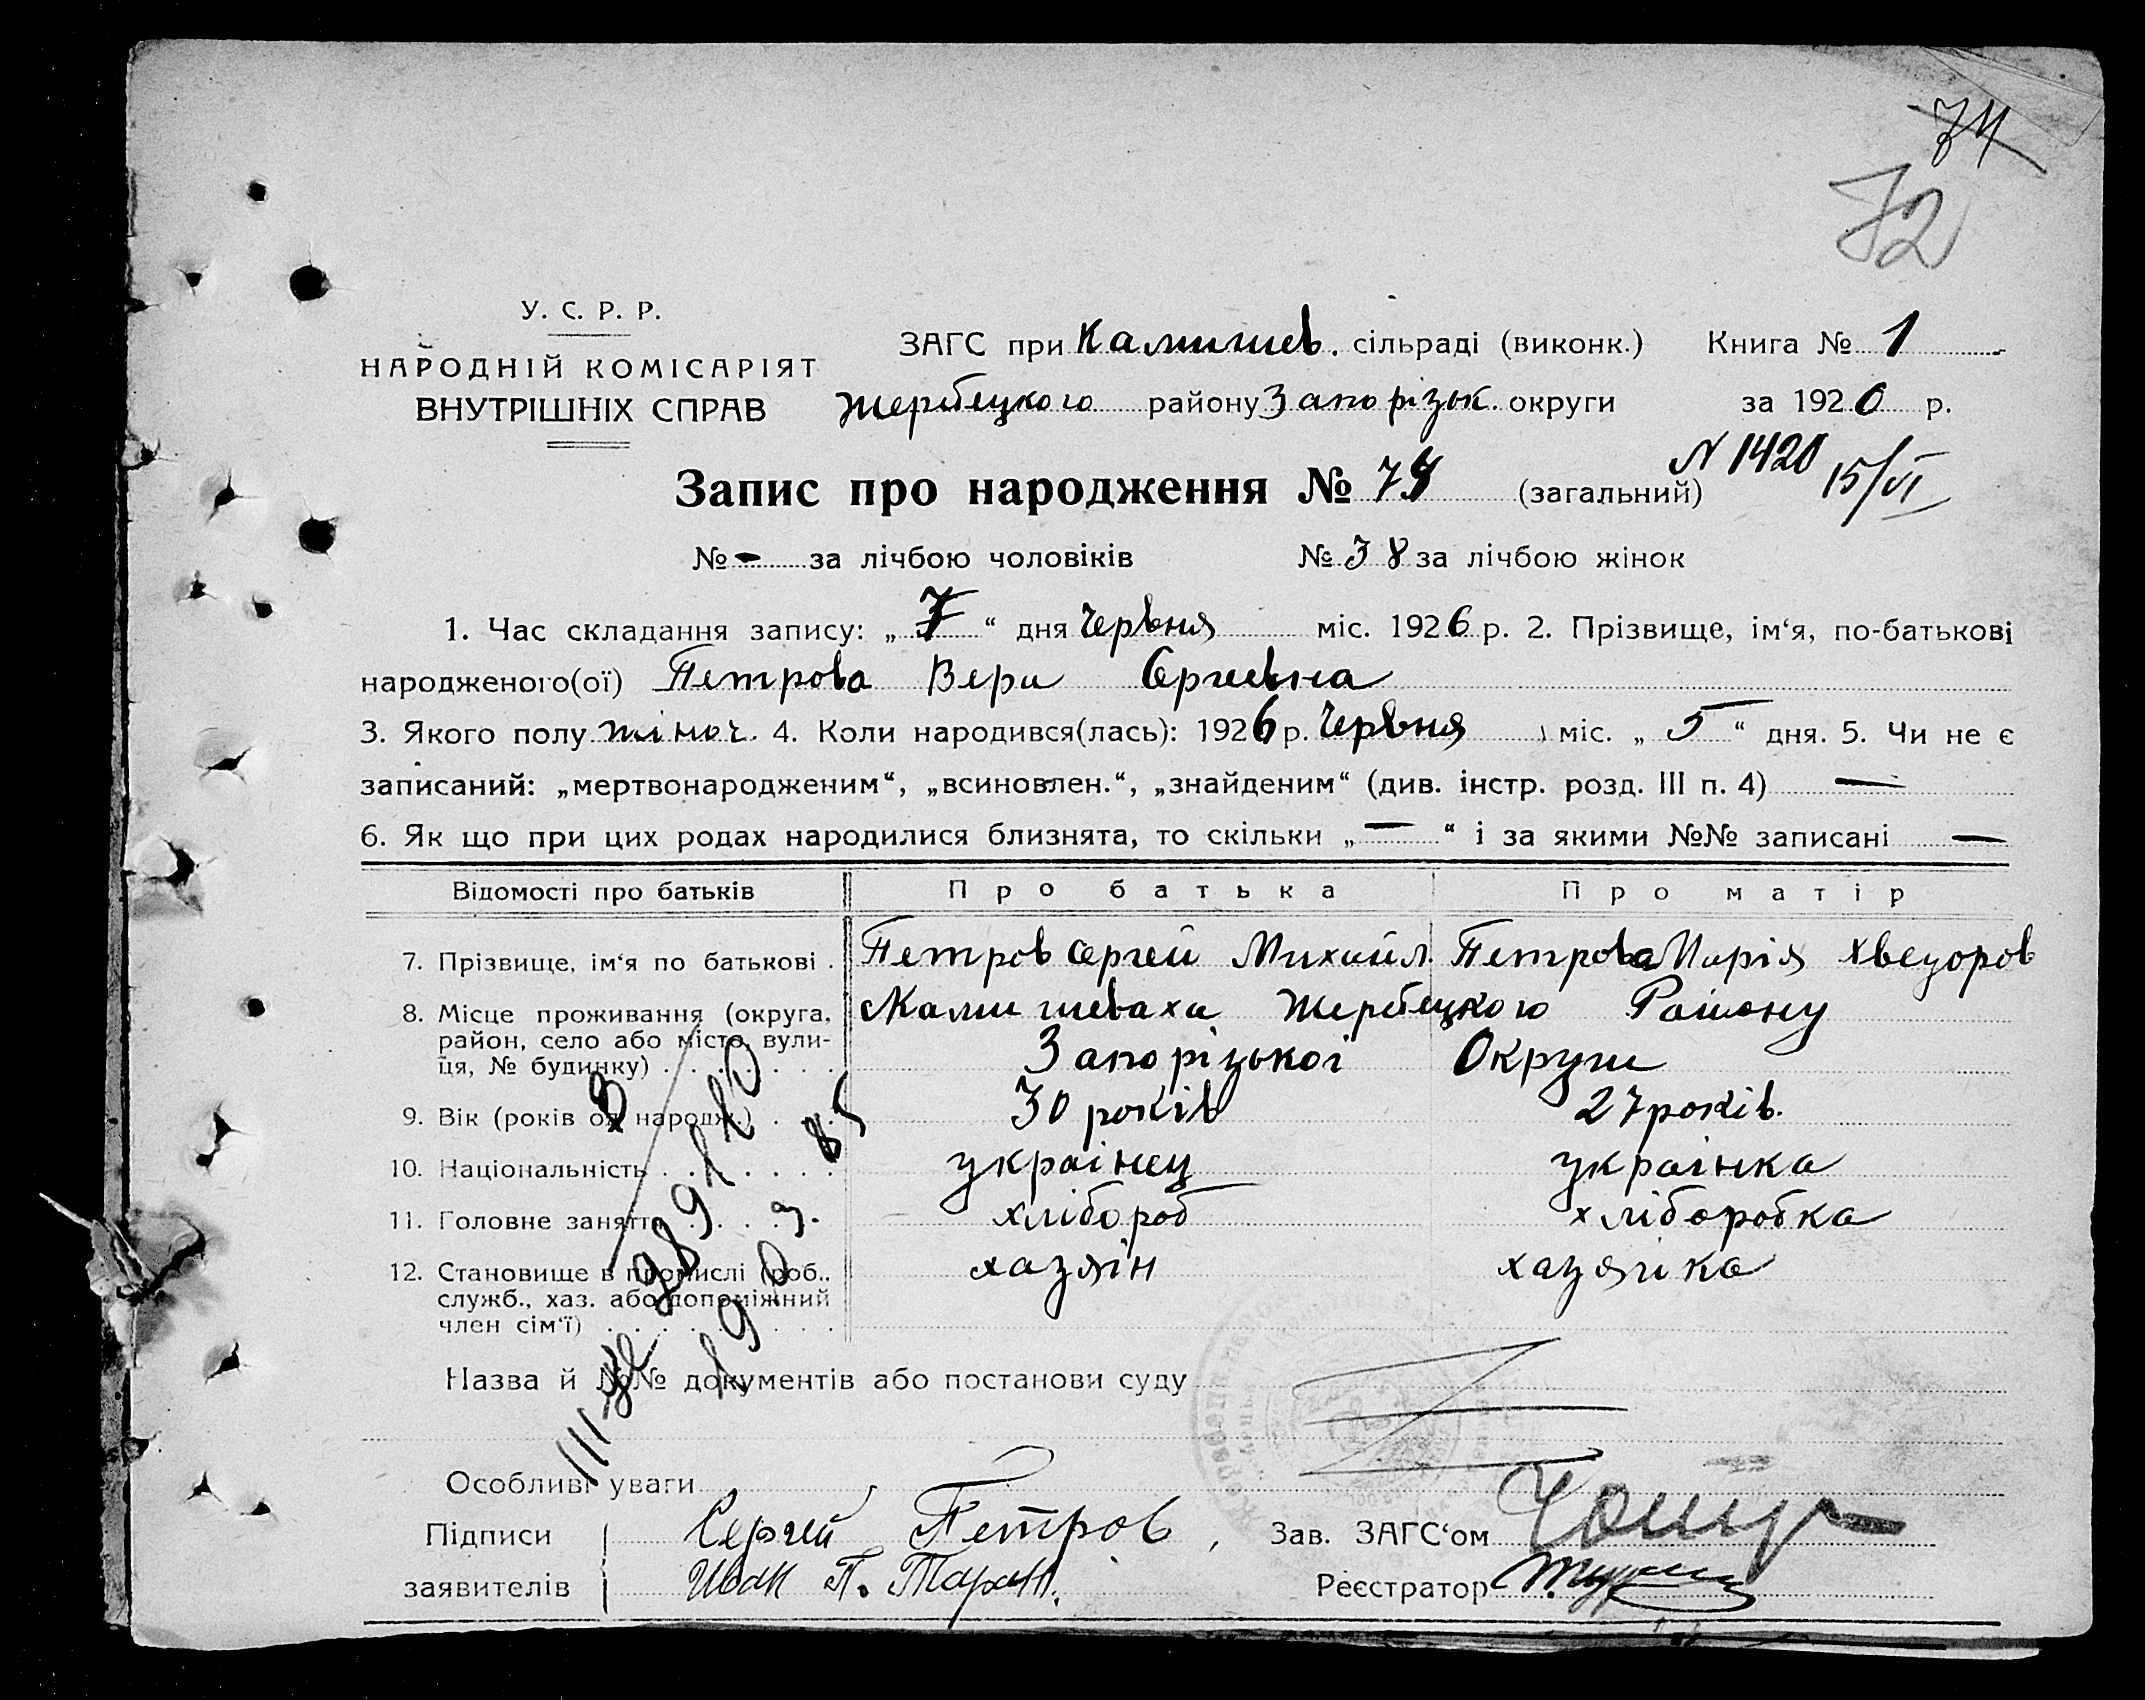 74
72
У. С. Р. Р.
НАРОДНІЙ КОМІСАРІЯТ
ВНУТРІШНІХ СПРАВ
ЗАГС при Камишев. сільраді (виконк.) Книга № 1
Жеребецкого району Запорізьк. округи за 1926 р.
N 1420 15/VI
Запис про народження № 74 (загальний)
№ - за лічбою чоловіків № 38 за лічбою жінок
1. Час складання запису: „7“ дня Червня міс. 1926 р. 2. Прізвище, ім‘я, по-батькові
народженого(ої) Петрова Вера Сергеевна
3. Якого полу жіноч. 4. Коли народився(лась): 1926 р. Червня міс. „5“ дня. 5. Чи не є
записаний: „мертвонародженим“, „всиновлен.“, „знайденим“ (див. інстр. розд. III п. 4) —
6. Як що при цих родах народилися близнята, то скільки „—“ і за якими №№ записані —
Відомості про батьків Про батька Про матір
7. Прізвище, ім‘я по батькові . Петров Сергей Михайл. Петрова Марія Хведоров
8. Місце проживання (округа, Камишеваха Жеребецкого Району
район, село або місто, вули-
ця, № будинку) . . . . . . . Запорізької Округи
9. Вік (років од народж.) . . . 30 років 27 років.
10. Національність . . . . . . українец українка
11. Головне заняття . . . . . хлібороб хліборобка
12. Становище в промислі (роб., хазяін хазяіка
служб., хаз. або допоміжний
член сім‘ї) . . . . . . . . .
Назва й №№ документів або постанови суду
Особливі уваги
Підписи Сергей Петров, Зав. ЗАГС‘ом
заявителів Иван П. Таран. Реєстратор